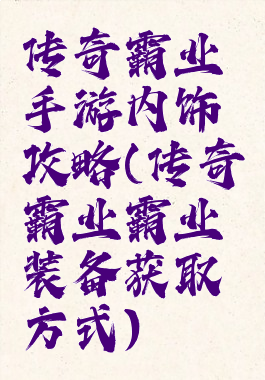 传奇霸业
手游内饰
攻略(传奇
霸业霸业
装备获取
方式)